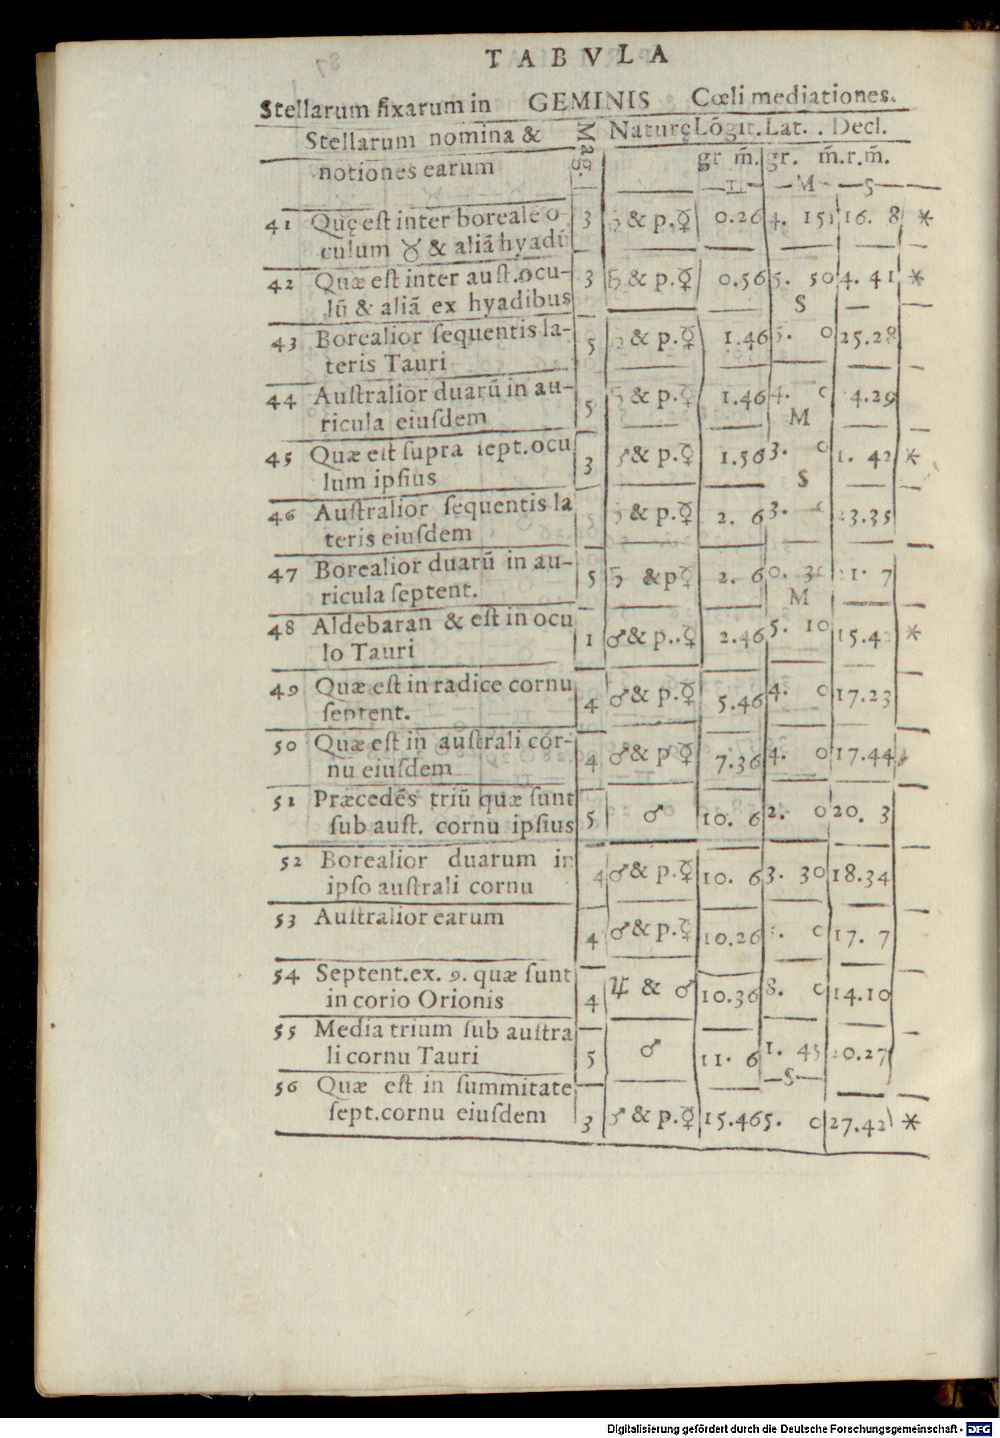 TABVLA
Stellarum fixarum in GEMINIS Cœli mediationes.
Stellarum nomina & Mag. Naturę Lõgit. Lat. . Decl.
notiones earum gr m̃. gr. m̃. r. m̃.
♊ M S
41 Quę eſt inter boreale o 3 ♄ & p. ☿ 0.26 4. 15 16. 8 *
culum ♉ & aliã hyadũ
42 Quæ eſt inter auſt. ocu- 3 ♄ & p. ☿ 0.56 5. 50 4. 41 *
lũ & aliã ex hyadibus S
43 Borealior ſequentis la- 5 ♄ & p. ☿ 1.46 5. 0 25.28
teris Tauri
44 Auſtralior duarũ in au- 5 ♄ & p. ☿ 1.46 4. 0 4.29
ricula eiuſdem M
45 Quæ eſt ſupra ſept. ocu 3 ♂ & p. ☿ 1.56 3. 0 1. 42 *
lum ipſius S
46 Auſtralior ſequentis la 5 ♄ & p. ☿ 2. 6 3. 23.35
teris eiuſdem
47 Borealior duarũ in au- 5 ♄ & p ☿ 2. 6 0. 30 21. 7
ricula ſeptent. M
48 Aldebaran & eſt in ocu 1 ♂ & p. . ☿ 2.46 5. 10 15.42 *
lo Tauri
49 Quæ eſt in radice cornu 4 ♂ & p. ☿ 5.46 4. 0 17.23
ſeptent.
50 Quæ eſt in auſtrali cor- 4 ♂ & p ☿ 7.36 4. 0 17.44
nu eiuſdem
51 Præcedẽs triũ quæ ſunt 5 ♂ 10. 6 2. 0 20. 3
ſub auſt. cornu ipſius
52 Borealior duarum in 4 ♂ & p. ☿ 10. 6 3. 30 18.34
ipſo auſtrali cornu
53 Auſtralior earum 4 ♂ & p. ☿ 10.26 0 17. 7
54 Septent. ex. 9. quæ ſunt 4 ♃ & ♂ 10.36 8. 0 14.10
in corio Orionis
55 Media trium ſub auſtra 5 ♂ 11. 6 1. 45 20.27
li cornu Tauri S
56 Quæ eſt in ſummitate 3 ♂ & p. ☿ 15.46 5. 0 27.42 *
ſept. cornu eiuſdem
Digitalisierung gefördert durch die Deutsche Forschungsgemeinschaft - DFG